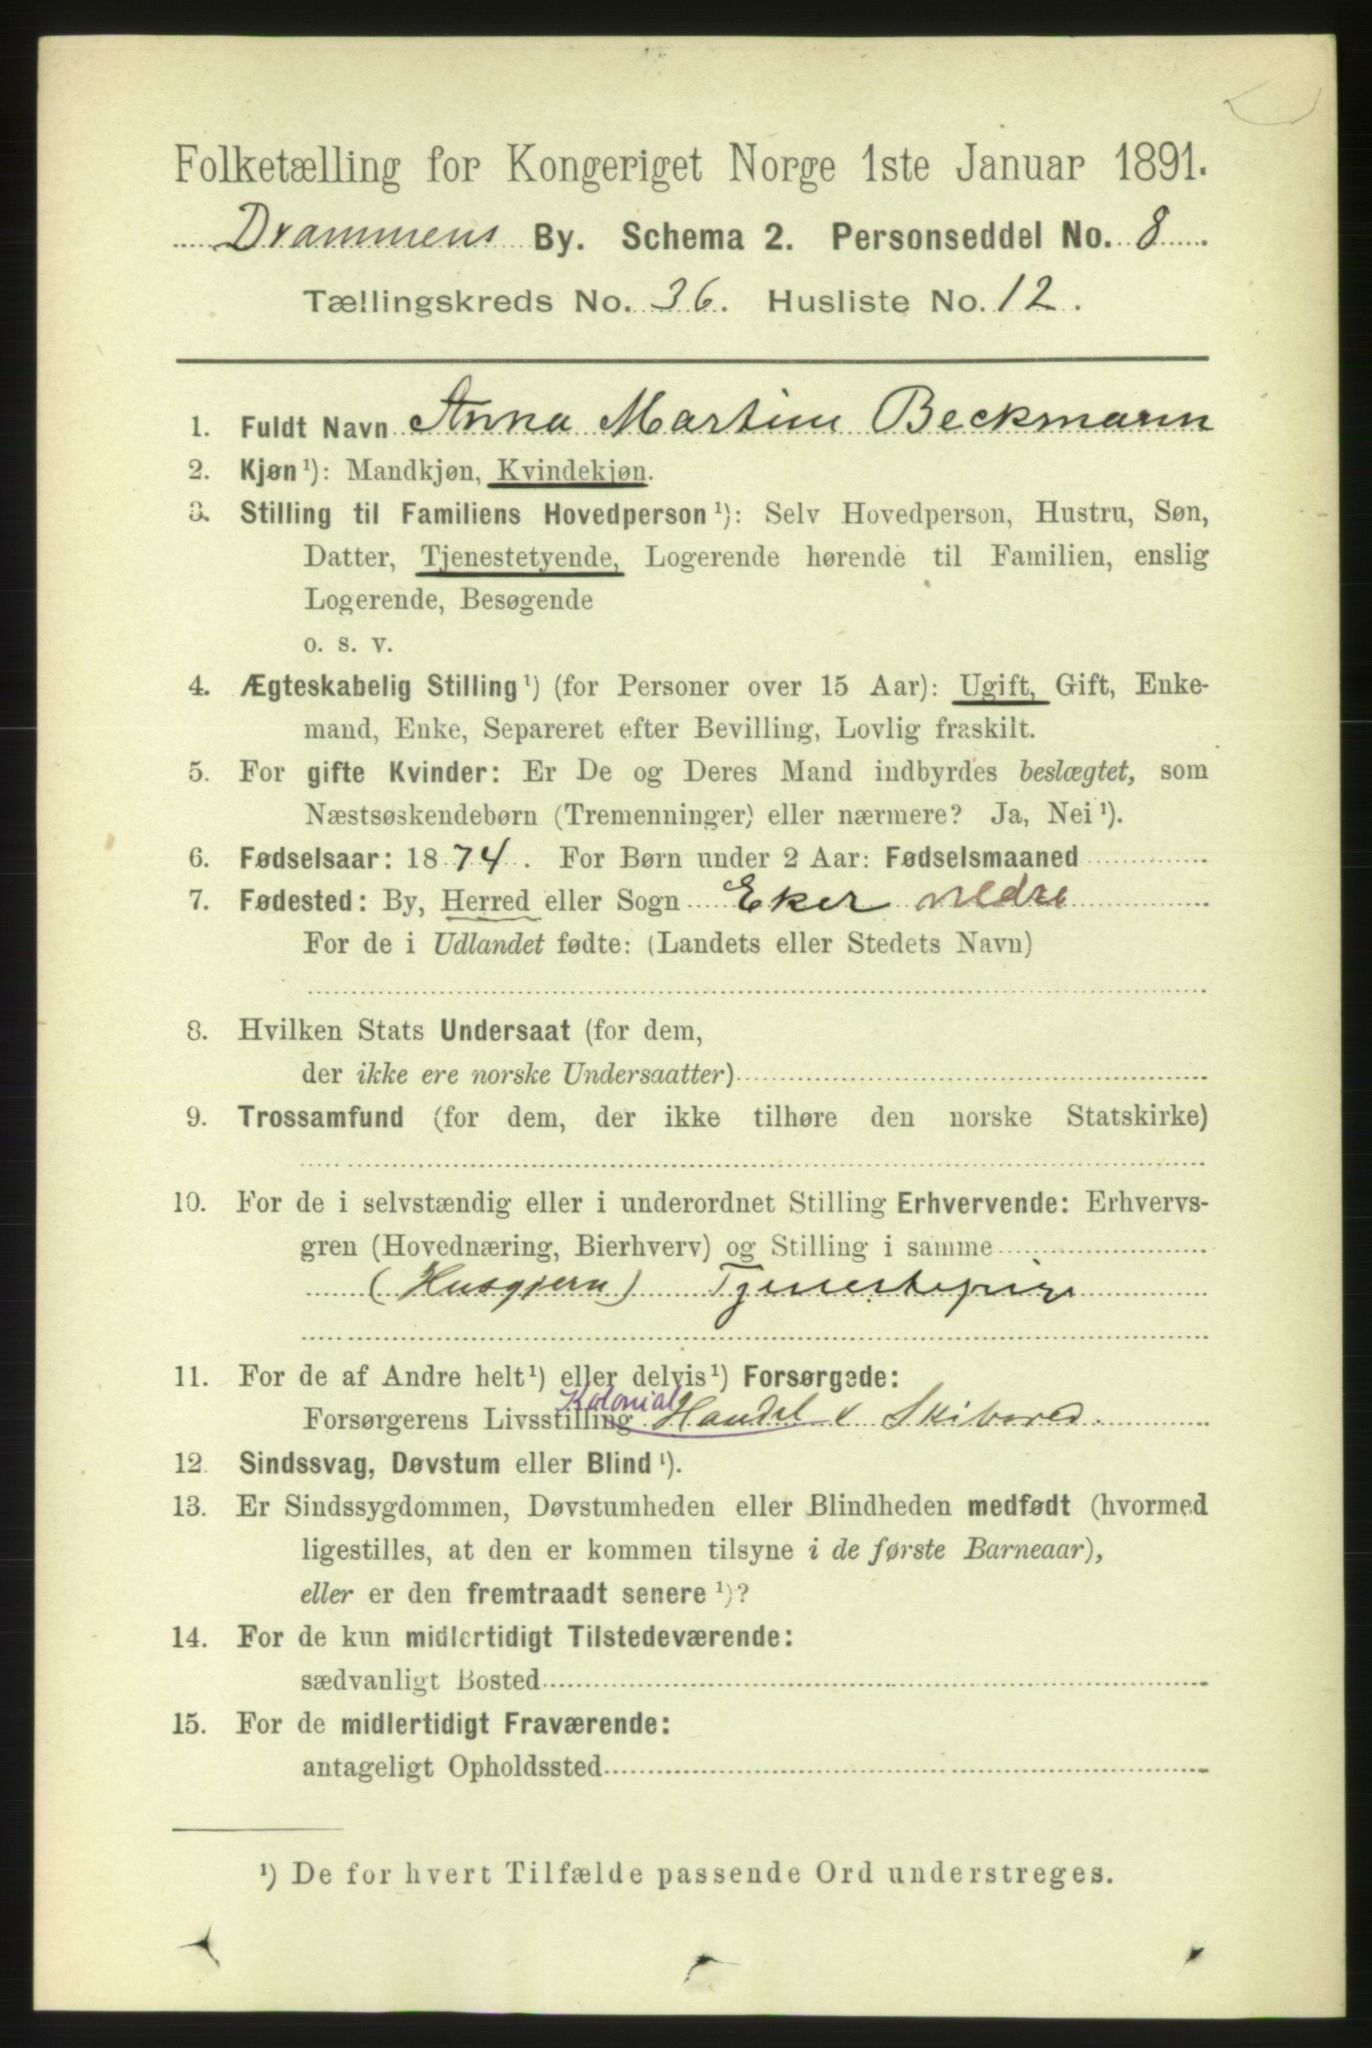 Folketælling for Kongeriget Norge 1ste Januar 1891.
Drammens By. Schema 2. Personseddel No. 8
Tællingskreds No. 36. Husliste No. 12.
1. Fuldt Navn Anna Martine Beckmann
2. Kjøn¹): Mandkjøn, Kvindekjøn.
3. Stilling til Familiens Hovedperson¹): Selv Hovedperson, Hustru, Søn,
Datter, Tjenestetyende, Logerende hørende til Familien, enslig
Logerende, Besøgende
o. s. v.
4. Ægteskabelig Stilling¹) (for Personer over 15 Aar): Ugift, Gift, Enke-
mand, Enke, Separeret efter Bevilling, Lovlig fraskilt.
5. For gifte Kvinder: Er De og Deres Mand indbyrdes beslægtet, som
Næstsøskendebørn (Tremenninger) eller nærmere? Ja, Nei¹).
6. Fødselsaar: 1874. For Børn under 2 Aar: Fødselsmaaned
7. Fødested: By, Herred eller Sogn Eker nedre
For de i Udlandet fødte: (Landets eller Stedets Navn)
8. Hvilken Stats Undersaat (for dem,
der ikke ere norske Undersaatter)
9. Trossamfund (for dem, der ikke tilhøre den norske Statskirke)
10. For de i selvstændig eller i underordnet Stilling Erhvervende: Erhvervs-
gren (Hovednæring, Bierhverv) og Stilling i samme
(Husgjern) Tjenestepige
11. For de af Andre helt¹) eller delvis¹) Forsørgede:
Forsørgerens Livsstilling Kolonial Handel & Skibsred.
12. Sindssvag, Døvstum eller Blind¹).
13. Er Sindssygdommen, Døvstumheden eller Blindheden medfødt (hvormed
ligestilles, at den er kommen tilsyne i de første Barneaar),
eller er den fremtraadt senere¹)?
14. For de kun midlertidigt Tilstedeværende:
sædvanligt Bosted
15. For de midlertidigt Fraværende:
antageligt Opholdssted
¹) De for hvert Tilfælde passende Ord understreges.